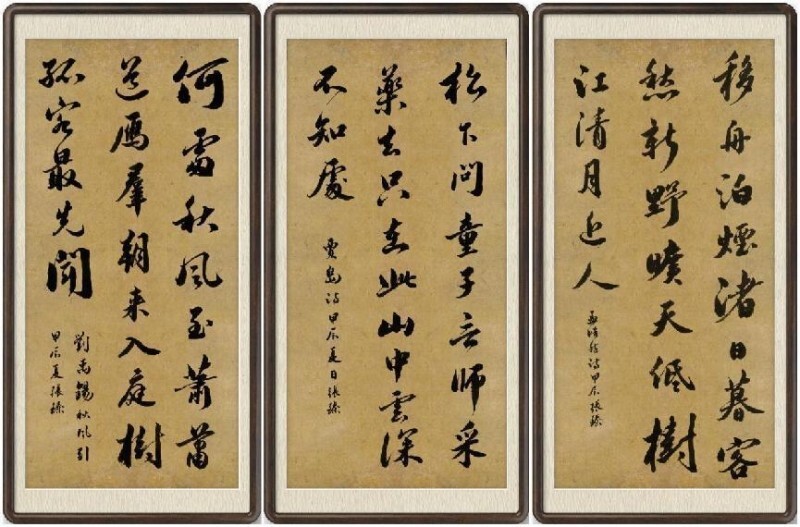 移舟泊煙渚日暮客
愁新野曠天低樹
江清月近人
孟浩然詩甲辰張
松下問童子言師采
藥去只在此山中雲深
不知處
賈島詩甲辰夏日張
何處秋風至蕭蕭
送鴈羣朝來入庭樹
孤客最先聞
劉禹錫秋風引
甲辰夏張